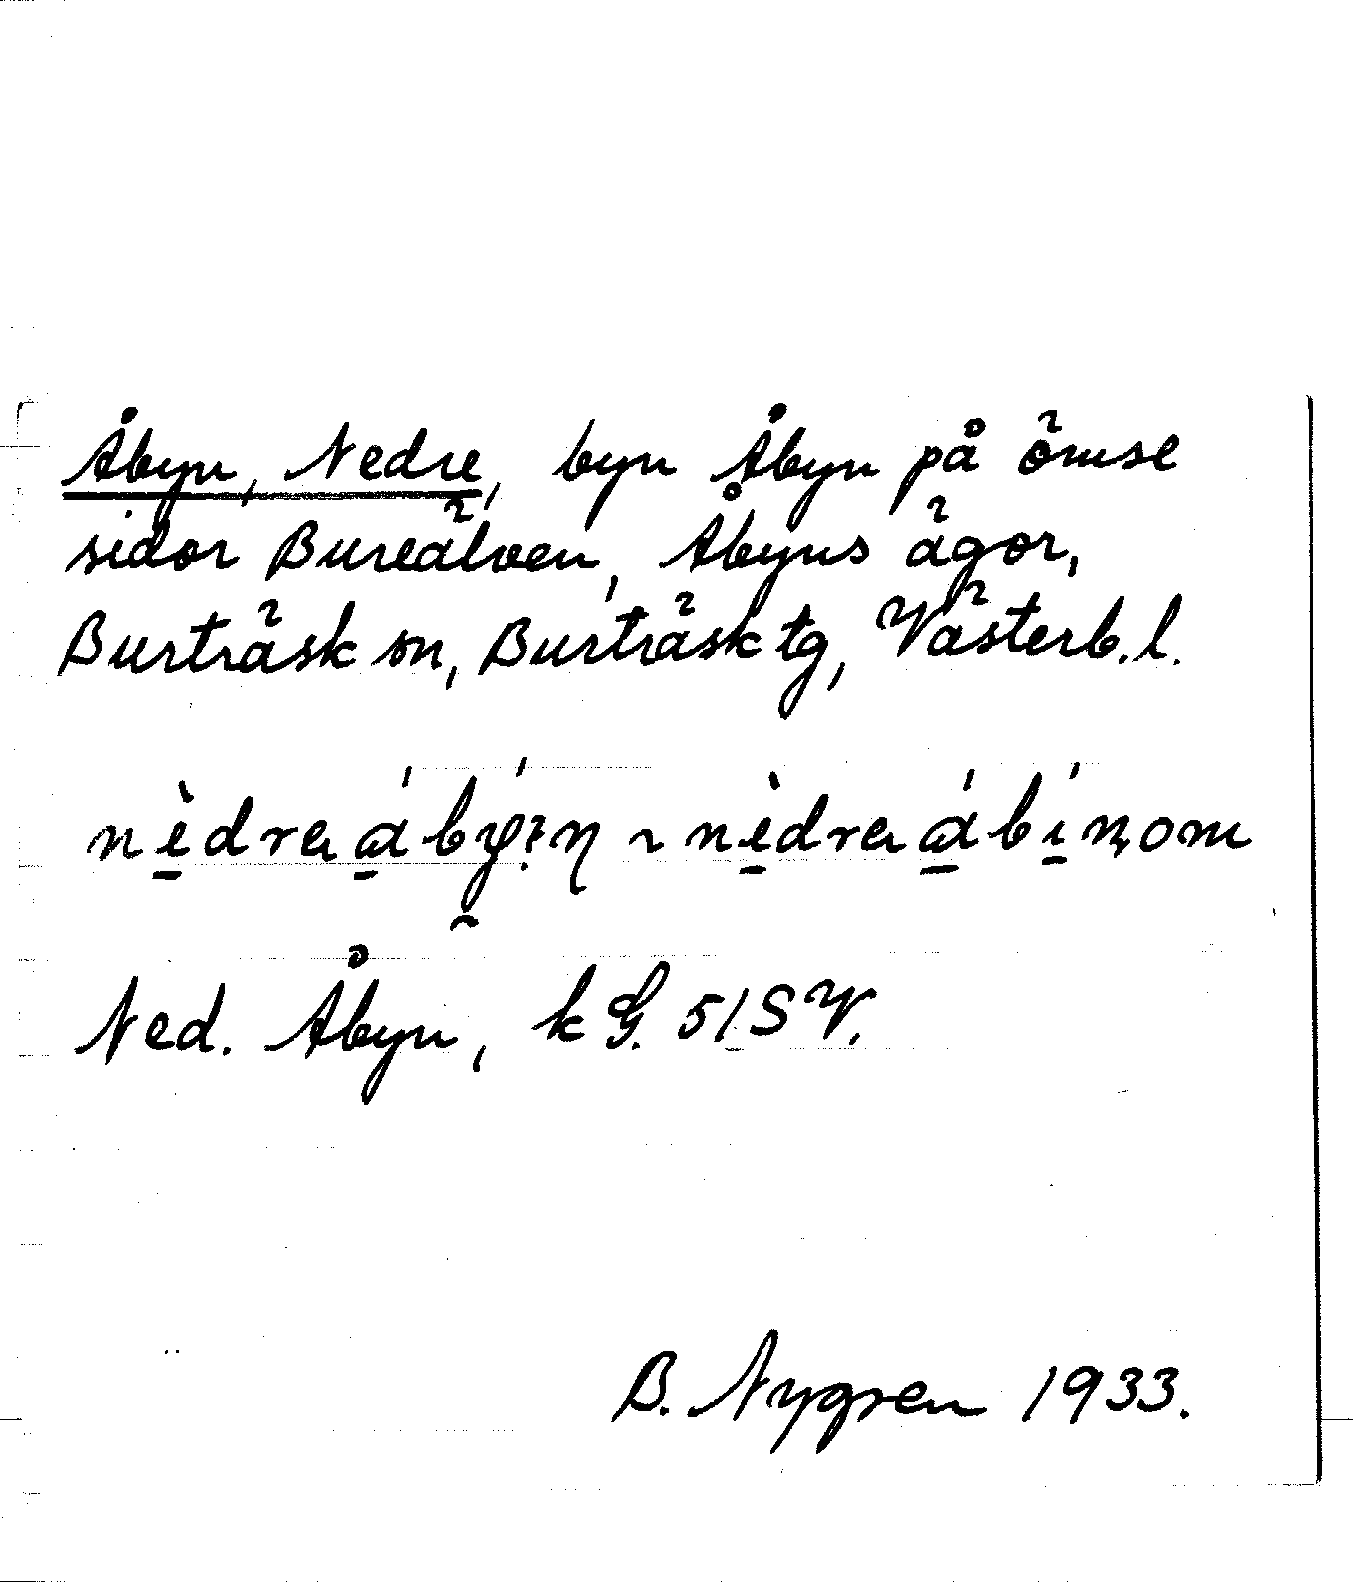 Åbyn, Nedre, byn Åbyn på ömse
sidor Bureälven, Åbyns ägor,
Burträsk sn, Burträsk tg, Västerb. l.
Ned. Åbyn, k G. 51 SV.
B. Nygren 1933.